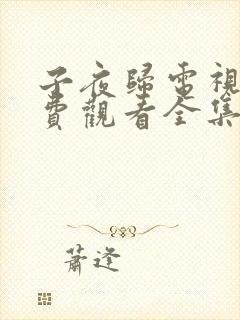 子夜歸電視
費觀看全集
蕭逢